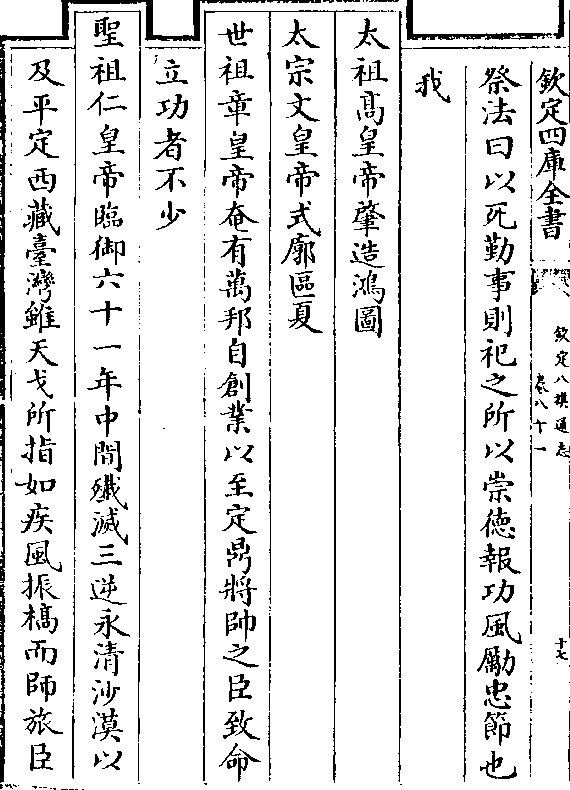 欽定四庫全書
欽定八旗通志
卷八十一
十七
祭法曰以死勤事則祀之所以崇德報功風勵忠節也
我
太祖高皇帝肇造鴻圖
太宗文皇帝式廓區夏
世祖章皇帝奄有萬邦自創業以至定鼎將帥之臣致命
立功者不少
聖祖仁皇帝臨御六十一年中間殲滅三逆永清沙漠以
及平定西藏臺灣雖天戈所指如疾風振槁而師旅臣